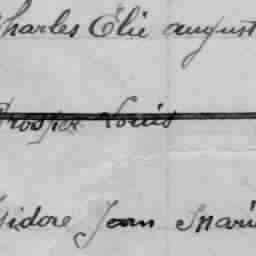 Charles Élie august
Prosper Louis
Isidore Jean Marie